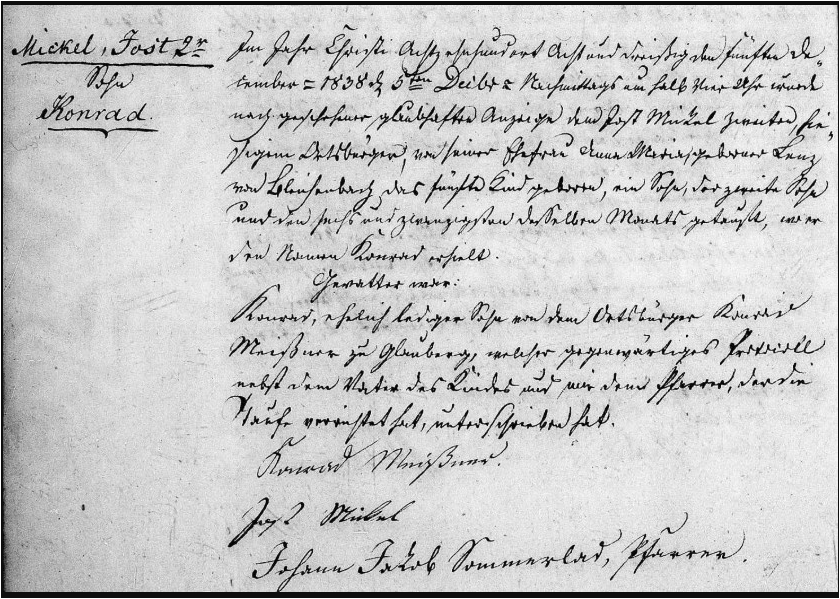 Mickel, Jost 2r
Sohn
Konrad.
Im Jahr Christi Achtzehnhundert Acht und dreißig den fünften De-
cember = 1838 d. 5ten Decbr = Nachmittags um halb vier Uhr wurde
nach geschehener glaubhaften Anzeige dem Jost Mickel zweiten, hie-
sigem Ortsbürger, von seiner Ehefrau Anna Maria, geborner Lenz
von Bleichenbach das fünfte Kind geboren, ein Sohn, der zweite Sohn
und den sechs und zwanzigsten desselben Monats getauft, wo er
den Namen Konrad erhielt.
Gevatter war:
Konrad, ehelich lediger Sohn von dem Ortsbürger Konrad
Meißner zu Glauberg, welcher gegenwärtiges Protocoll
nebst dem Vater des Kindes und mir dem Pfarrer, der die
Taufe verrichtet hat, unterschrieben hat.
Konrad Meißner.
Jost Mickel
Johann Jakob Sommerlad, Pfarrer.